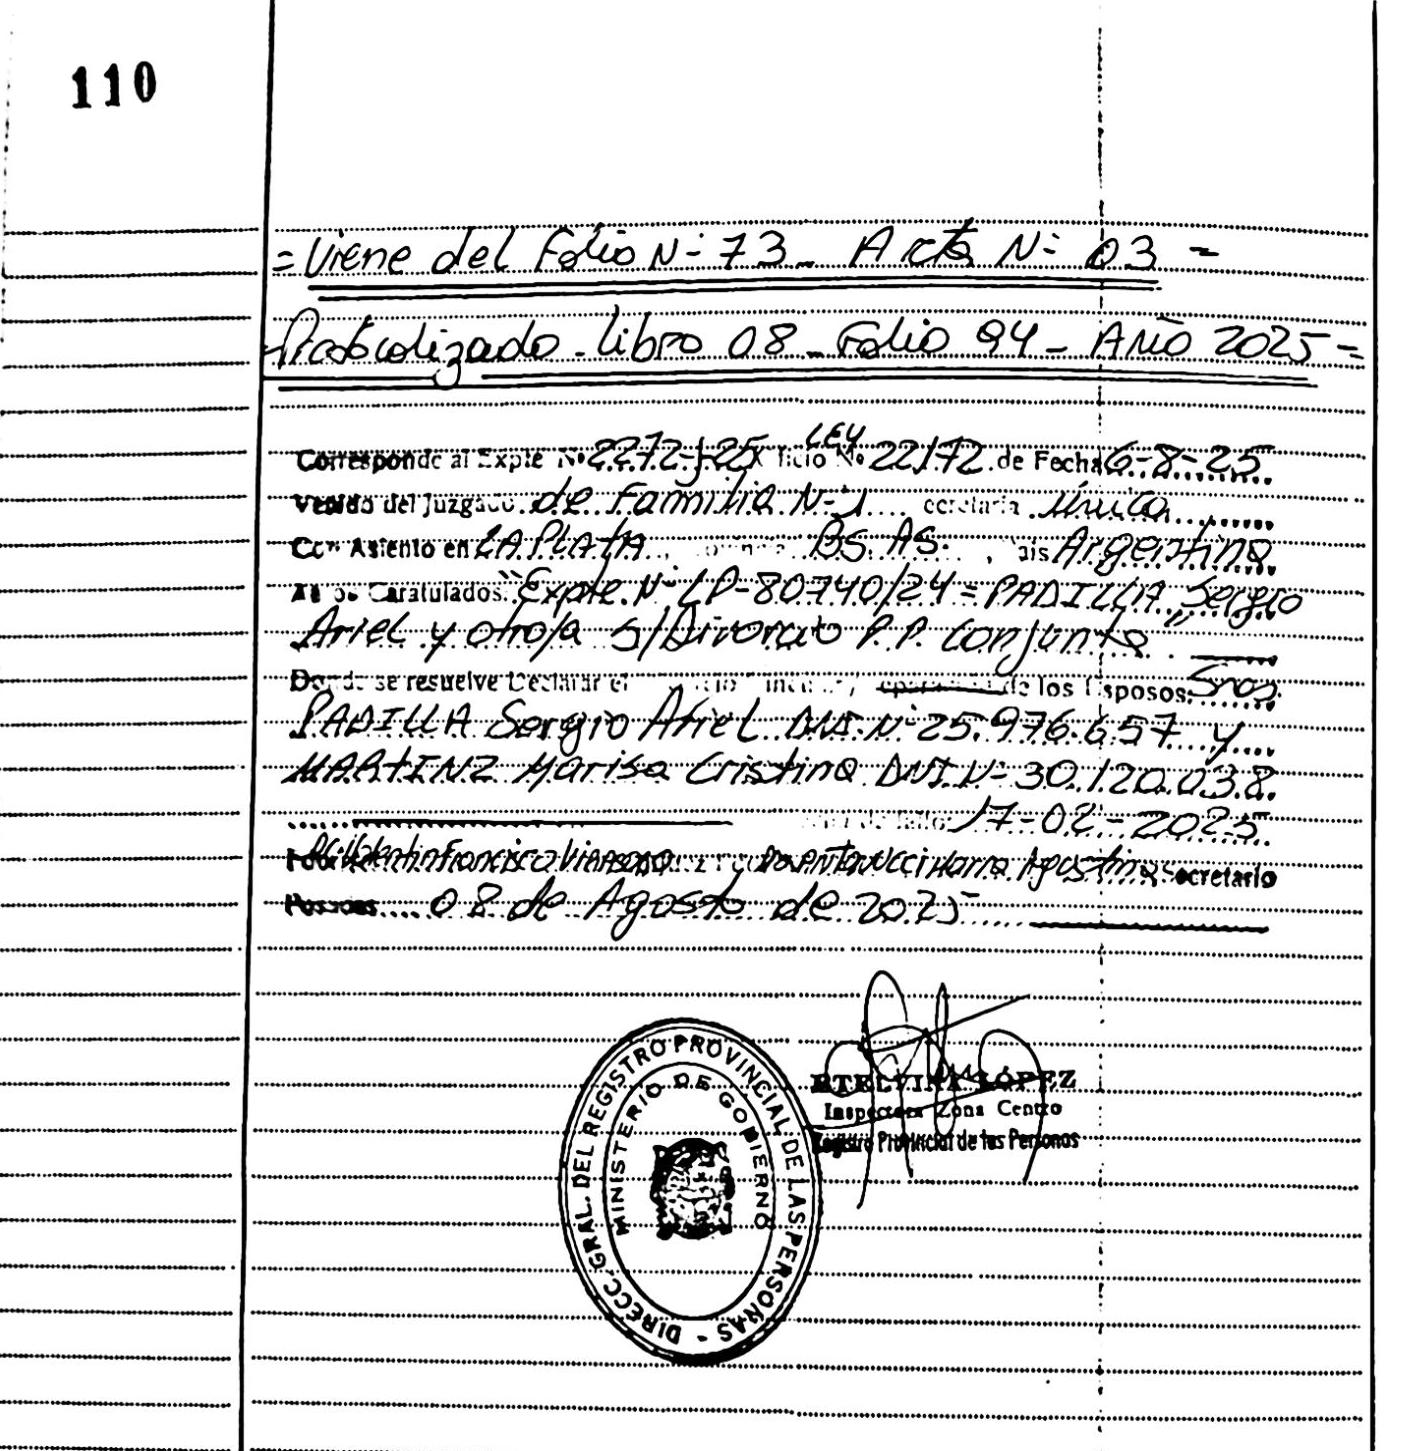 110
= Viene del Folio N- 73 - Acta N- 03 =
Protocolizado - Libro 08 - Folio 94 - Año 2025 =
Corresponde al Expte Nº 2272-J-25 LEY Nº 22172 de Fecha 6-8-25
Venido del Juzgado de Familia N-1 ecretaria Única
Con Asiento en LA PLATA, BS. AS. , Pais Argentina
Autos Caratulados "Expte. N- LP-80740/24 = PADILLA Sergio
Ariel y otro/a S/Divorcio P.P. conjunta"
Donde se resuelve Declarar el de los Esposos: Sres.
PADILLA Sergio Ariel DNI. N- 25.976.657 y
MARTINZ Marisa Cristina DNI N- 30.120.038.
17-02-2025
Francisco Agustina Secretario
Posadas 08 de Agosto de 2025
ETELVINA LÓPEZ
Inspectora Zona Centro
Registro Provincial de las Personas
DIRECC. GRAL. DEL REGISTRO PROVINCIAL DE LAS PERSONAS -
MINISTERIO DE GOBIERNO